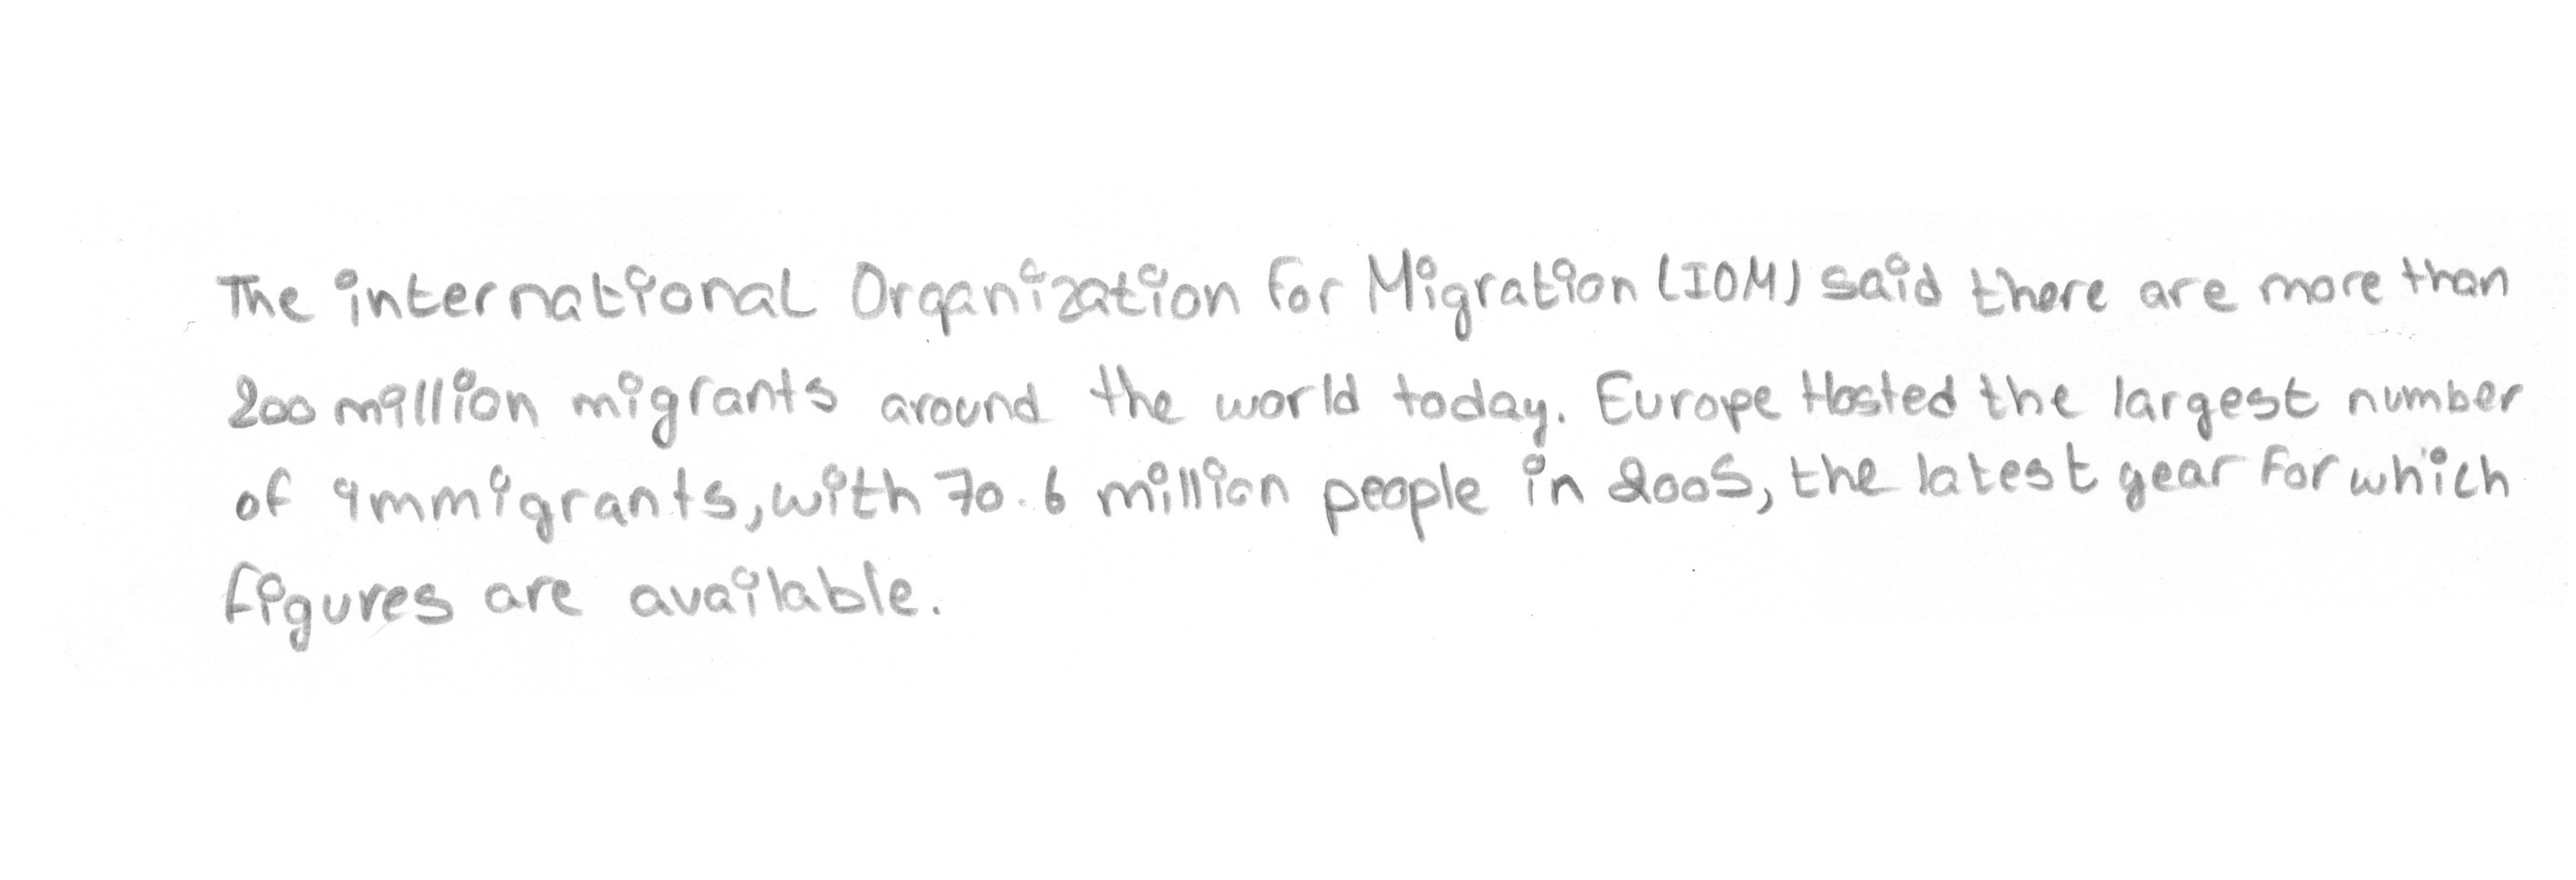 The international Organization for Migration (IOM) said there are more than
200 million migrants around the world today. Europe Hosted the largest number
of immigrants, with 70.6 million people in 2005, the latest year for which
figures are available.